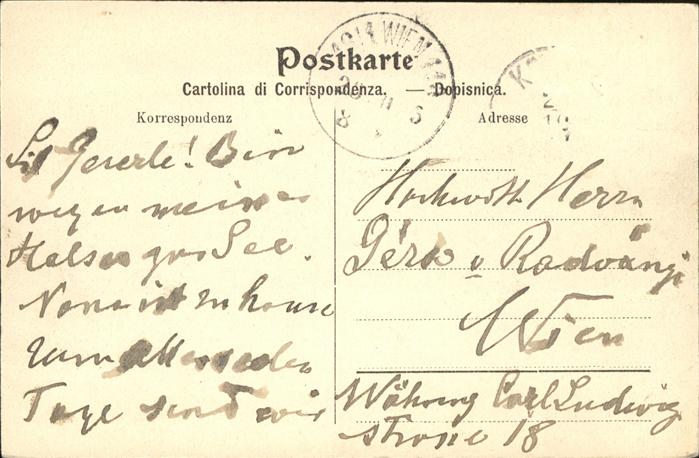 Postkarte
Cartolina di Corrispondenza. — Dopisnica.
Korrespondenz
Adresse
Bin
wegen meines
Halses zur See.
Nona ist zu hause
zum
Tage sind wir
Hochwolb Herrn
Géza v Radvány
Wien
Währing Carl Ludwig
strasse 18